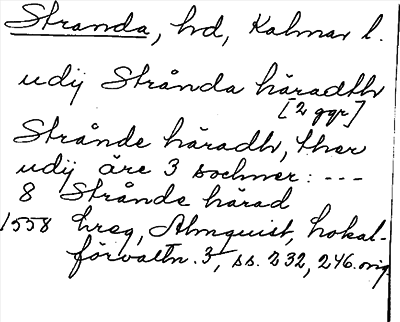 Stranda, hd, Kalmar l.
udij Strånda häradh
[2 ggr]
Strånde häradh, ther
udij äre 3 sochner: ---
8 Strånde härad
1558 hreg, Almquist, Lokal-
förvaltn. 3, ss. 232, 246. orig.